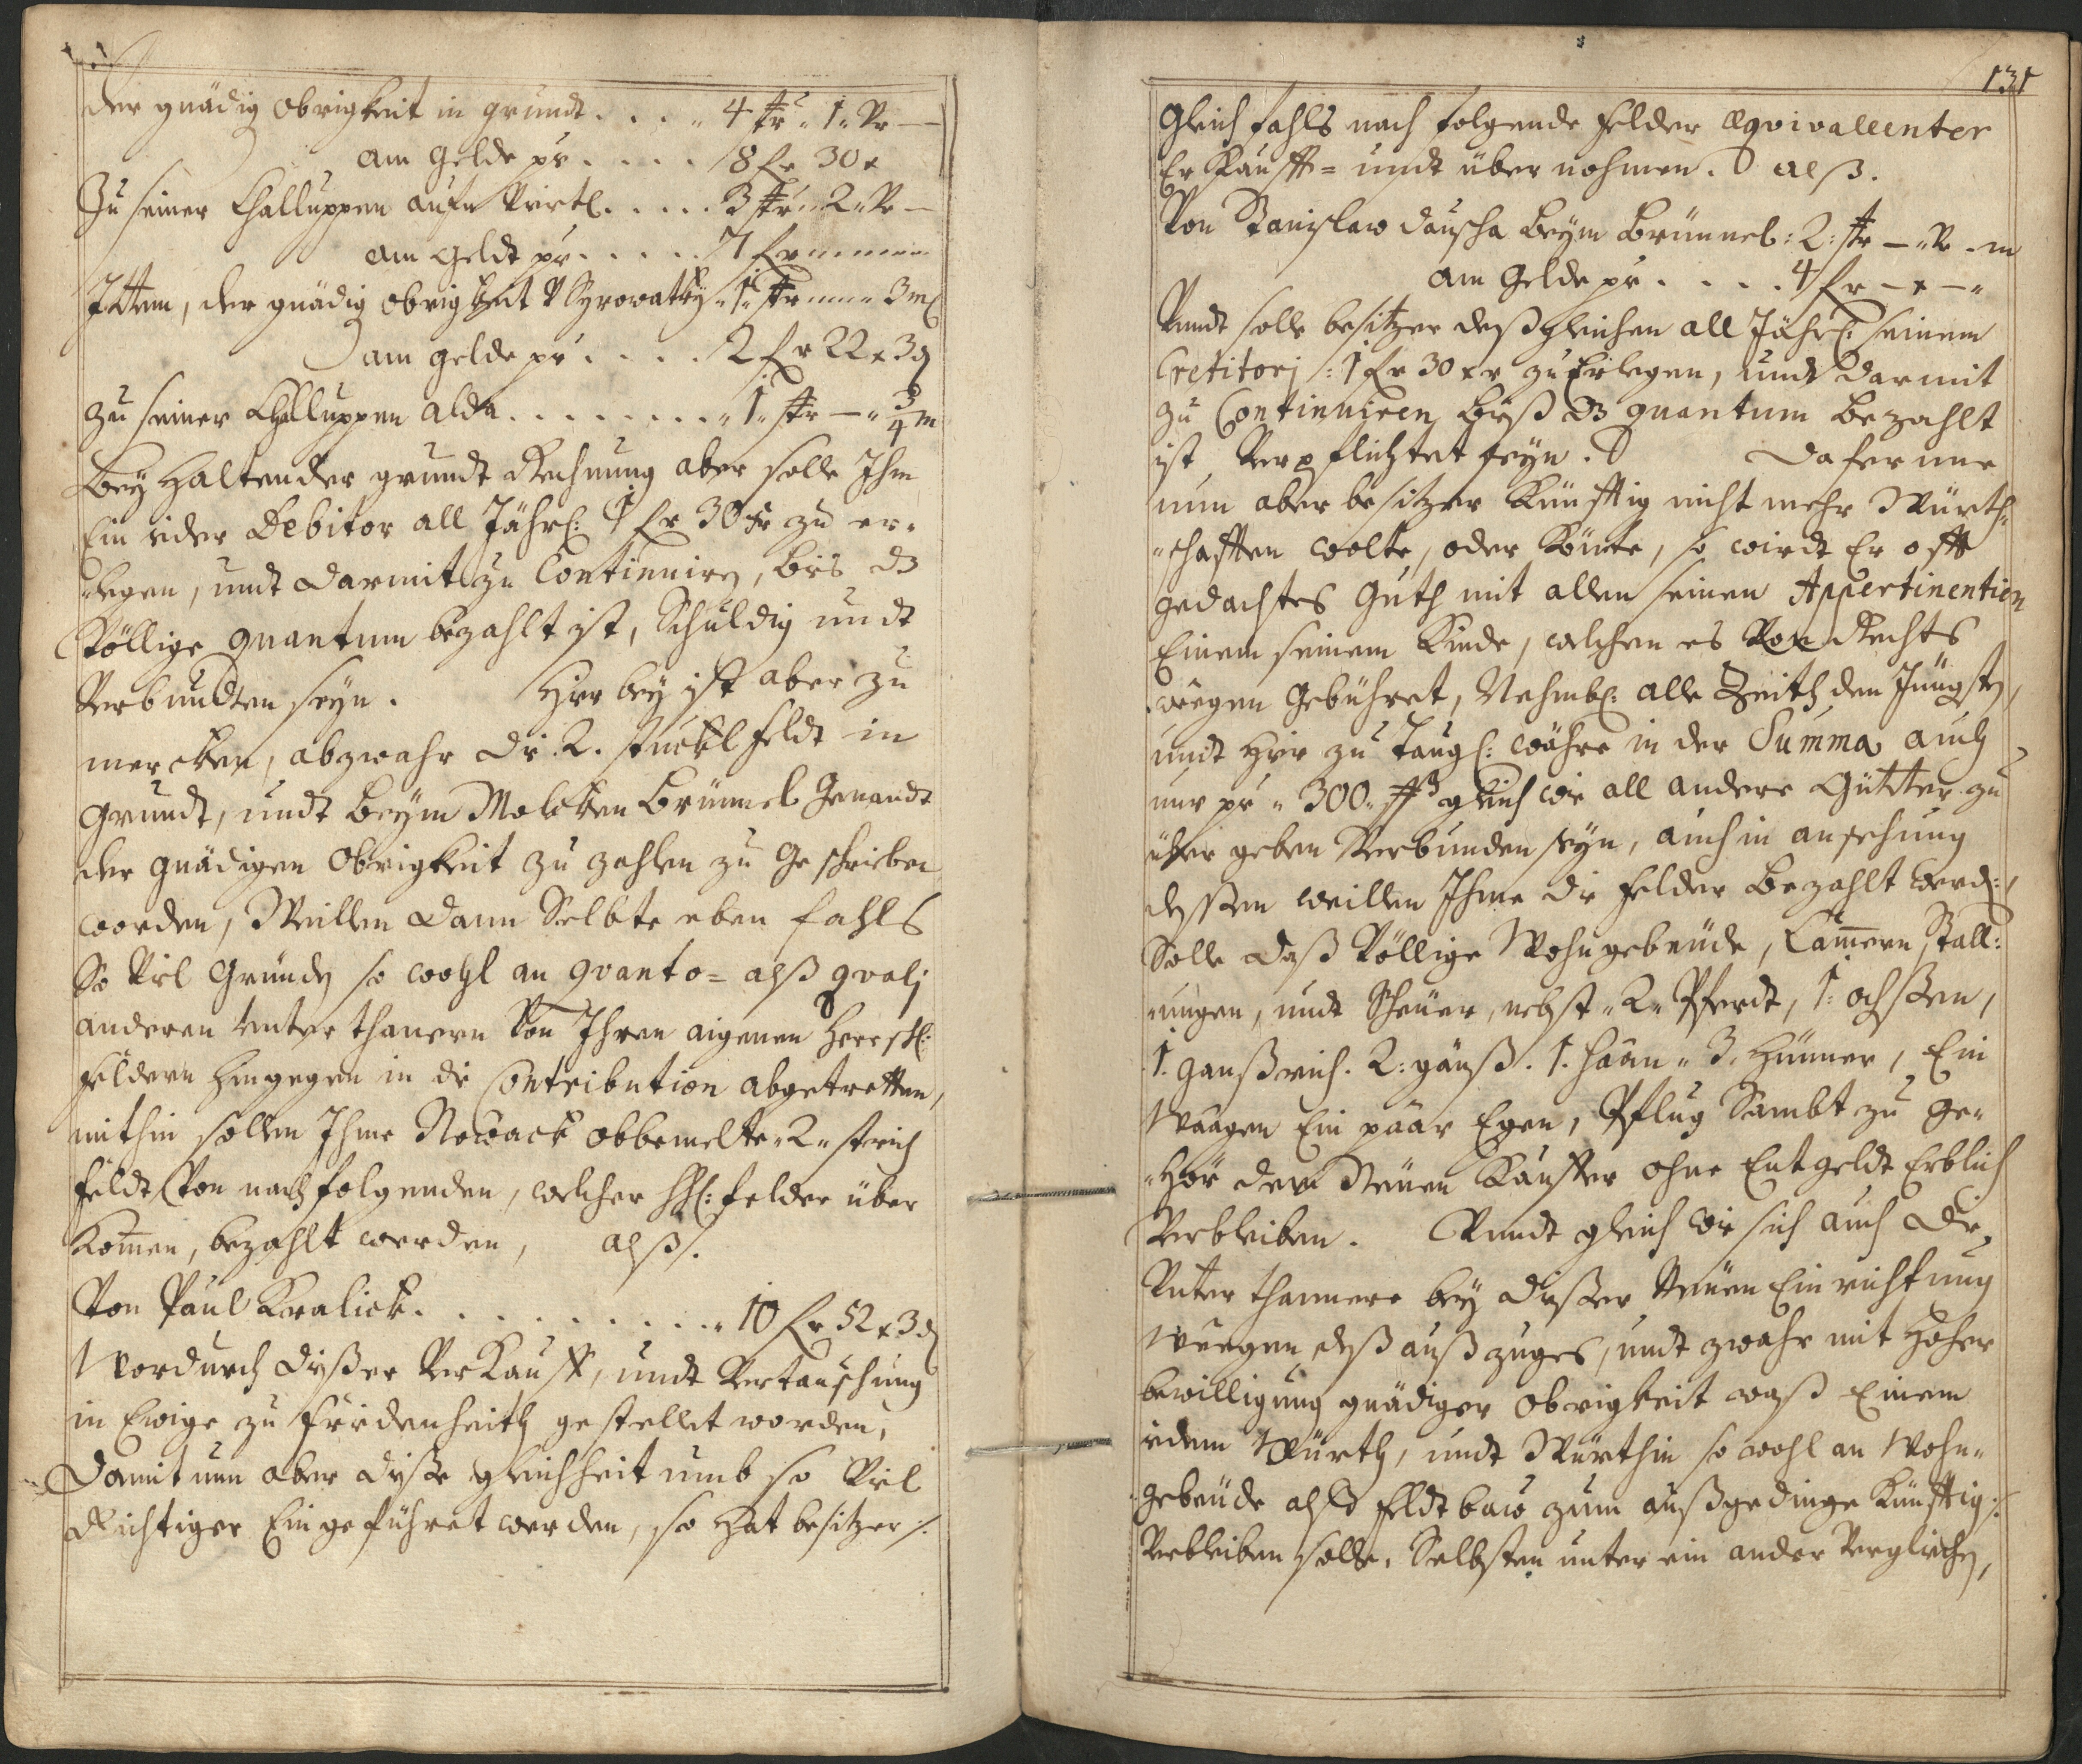 der gnädig obrigkeit in grundt . . . . 4 str „ 1 „ Vr —
am gelde pr . . . . 8 fr 30 x
Zu seiner Challuppen aufn Virtl . . . . . 3 str „ 2 „ Vr —
am geldt pr . . . . . 7 fr
Ittem, der gnädig obrigkeit V Syrowatky „ 1 „ str „ 3 m
am gelde pr . . . . 2 fr 22 x 3 d
zu seiner Challuppen alda . . . . . . . . „ 1 „ str — „ 3/4 m
Bey Haltender grundt Rechnung aber solle Ihm
Ein ieder Debitor all Jährl: 1 fr 30 xr zu er-
-legen, undt darmit zu Continuirn, bis dz
Völlige quantum bezahlt ist, Schuldig undt
Verbundten seyn. Hierbey ist aber zu
mercken, obzwahr die 2. stuckl feldt in
grundt, undt beym Molcken Brünnel genandt
der gnädigen Obrigkeit zu zahlen zu geschrieben
worden, Weillen dann Selbte eben fahls
So Viel gründ so wohl an quanto = alß qvalj
anderen Unterthanern Von Ihren aigenen Herrschl:
feldern hingegen in die Contribution abgetretten,
mithin sollen Ihme Nowack obbemelte „ 2 „ strich
feldt Von nachfolgenden, welcher hschl: felder über
Komen, bezahlt werden, alß.
Von Paul Kralick . . . . . . . . . . „ 10 fr 52 x 3 d
Wordurch dießer Verkauff, undt Vertauschung
in Ewige zu friedenheith gestellet worden,
Damit nun aber dieße gleichheit umb so Viel
Richtiger Eingeführet werden, so hat besitzer ./.
131
Gleich fahls nach folgende felder æqvivallenter
Er Kaufft = undt übernohmen. alß.
Von Stanislaw Dauscha beym Brünnel: 2: str — „ Vr — m
am gelde pr . . . . 4 fr — x — „
Vundt solle besitzer deßgleichen all Jährl: seinem
Creditorj: 1 fr 30 xr zu Erlegen, undt darmit
zu Continuiren bieß dz quantum bezahlt
ist Verpflichtet seyn. Dafern nur
nun aber besitzer Künfftig nicht mehr Würth-
-schafften wolte, oder Könte, so wirdt Er offt
gedachtes Guth mit allen seinen Appertinentien
Einem seinem Kinde, welchen es Von Rechts
weegen gebühret, Nehmbl: alle Zeith den Jüngsten,
undt hier zu Taugl: währe in der Summa auch
nur pr „ 300 „ ff gleich wie all andere Gütter zu
übergeben Verbunden seyn, auch in ansehung
dessen weillen Ihme die felder bezahlt werd:,
Solle daß Völlige Wohngebeude, Camern Stall:
-ungen, undt Scheuer, nebst „ 2 „ Pferdt, 1: ochßen,
1. ganßrich. 2: gänß. 1. Haan „ 3. Hünner, Ein
Waagen Ein paar Egen, Pflug Sambt zu ge-
-hör dem Neuen Kauffer ohne Entgeldt Erblich
Verbleiben. Vundt gleich wie sich auch die
Unterthannere bey dießer Neuen Einrichtung
Weegen deß außzuges, undt zwahr mit hoher
bewilligung gnädiger obrigkeit waß Einem
iedem Würth, undt Würthin so wohl an Wohn-
gebeude alß feldtbaw zum außgedinge künfftig:
Verbleiben solle, Selbsten unter ein ander Verglichen,